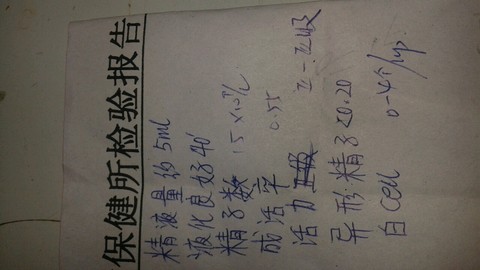 保健所检验报告
精液量约5ml
液化良好40'
精子数 15×10⁹/L
成活率 0.55
活力 Ⅱ-Ⅲ级
异形精子<0.20
白cell 0-4个/hp